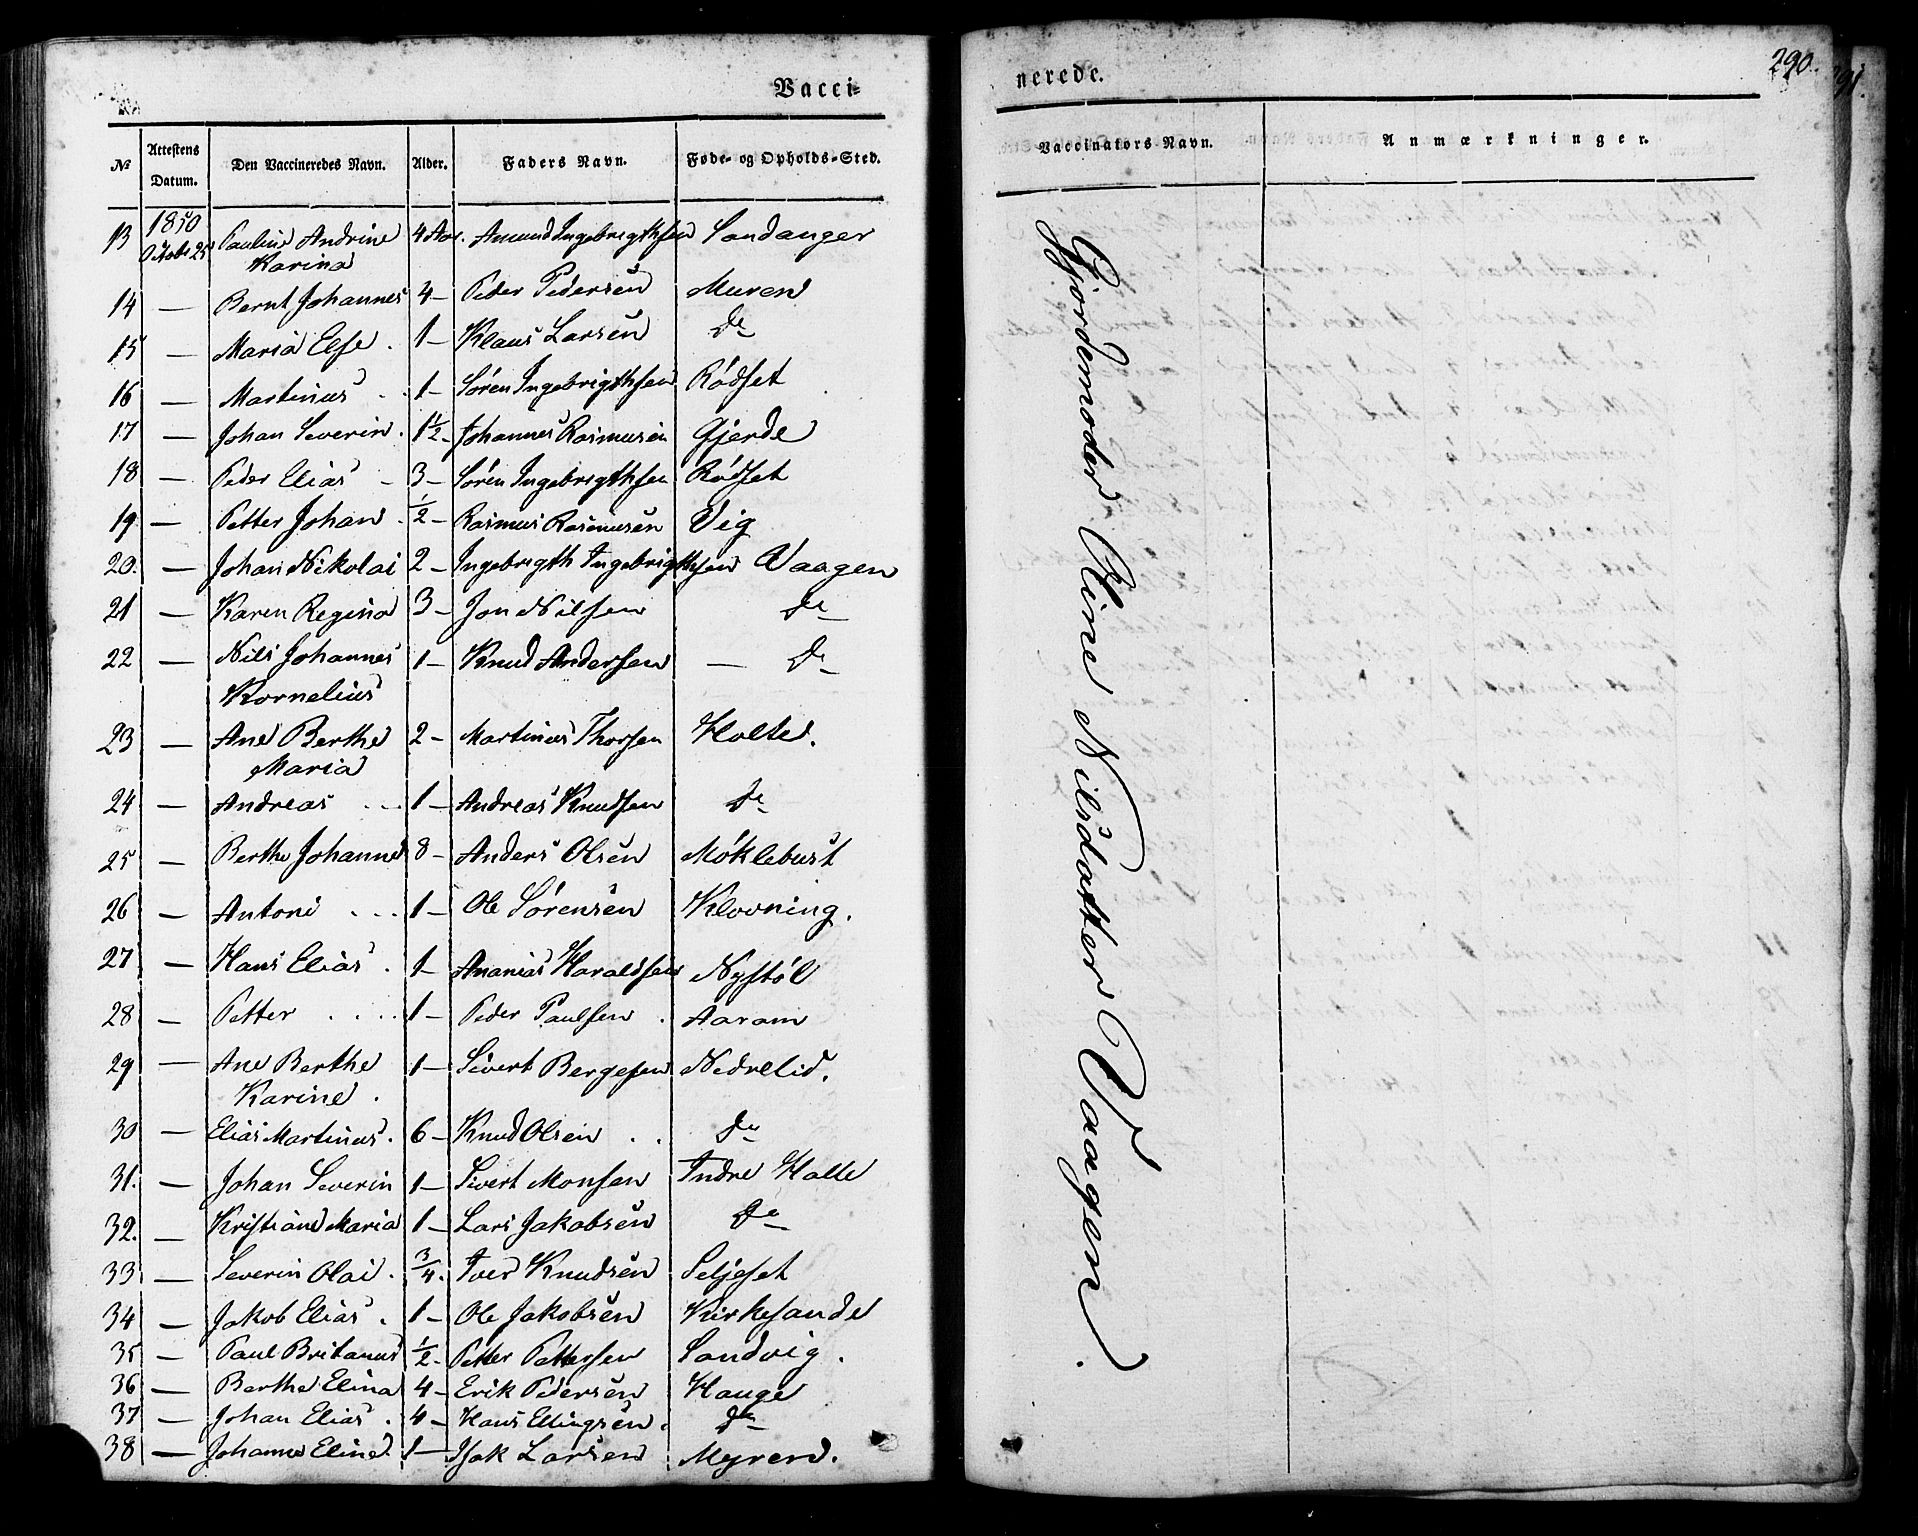 Vacci-
№ Attestens Datum. Den Vaccineredes Navn. Alder. Faders Navn. Føde- og Opholds-Sted.
1850
13 Octob. 25 Pauline Andrine 4 Aar. Amund Ingebrigthsen Sandanger
Karina
14 — Bernt Johannes 4 — Peder Pedersen Muren
15 — Maria Else . 1 — Klaus Larsen Do
16 — Martinus . . 1 — Søren Ingebrigthsen Rødset
17 — Johan Severin . 1½ — Johannes Rasmusen Gjerde
18 — Peder Elias - 3 — Søren Ingebrigthsen Rødset
19 — Petter Johan . ½ — Rasmus Rasmusen Vig
20. — Johan Nikolai 2 — Ingebrigth Ingebrigthsen Vaagen
21 — Karen Regina 3 — Jon Nilsen Do
22 — Nils Johannes 1 — Knud Andersen — Do
Kornelius
23 — Ane Berthe 2 — Martinus Thorsen Holte.
Maria
24 — Andreas . . . 1 — Andreas Knudsen Do
25 — Berthe Johanne 8 — Anders Olsen Møklebust
26 — Antoni . . . 1 — Ole Sørensen Klovning.
27 — Hans Elias . 1 — Ananias Haraldsen Nystøl
28 — Petter . . . . 1 — Peder Paulsen . Aaram
29 — Ane Berthe 1 — Sivert Bergesen Nedrelid.
Karine .
30 — Elias Martinus . 6 — Knud Olsen . . Do
31. — Johan Severin 1 — Sivert Monsen Indre Holte
32. — Kristiane Maria 1 — Lars Jakobsen Do
33 — Severin Olai . ¾. Iver Knudsen Seljeset
34 — Jakob Elias . 1 — Ole Jakobsen Kirkesande
35 — Paul Britanus ½ — Petter Pettersen Sandvig .
36 — Berthe Elina 4 — Erik Pedersen Hauge
37 — Johan Elias . 4 — Hans Ellingsen . Do
38 — Johanne Eline 1 — Isak Larsen Myren.
nerede.
290.
291.
Vaccinators Navn. Anmærkninger.
Gjordemoder Nilsdatter Vaagen.